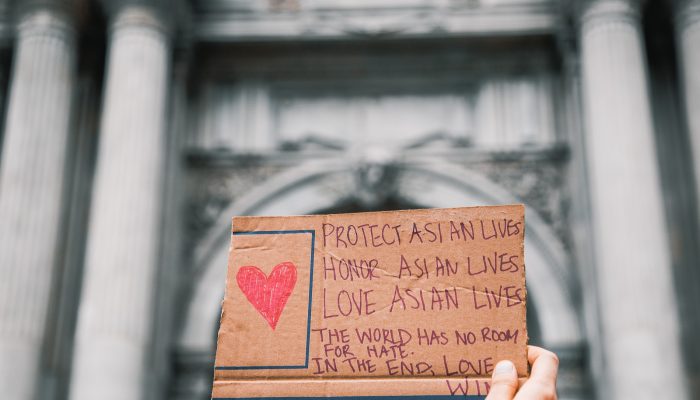 PROTECT ASIAN LIVES
HONOR ASIAN LIVES
LOVE ASIAN LIVES
THE WORLD HAS NO ROOM
FOR HATE.
IN THE END, LOVE
WIN